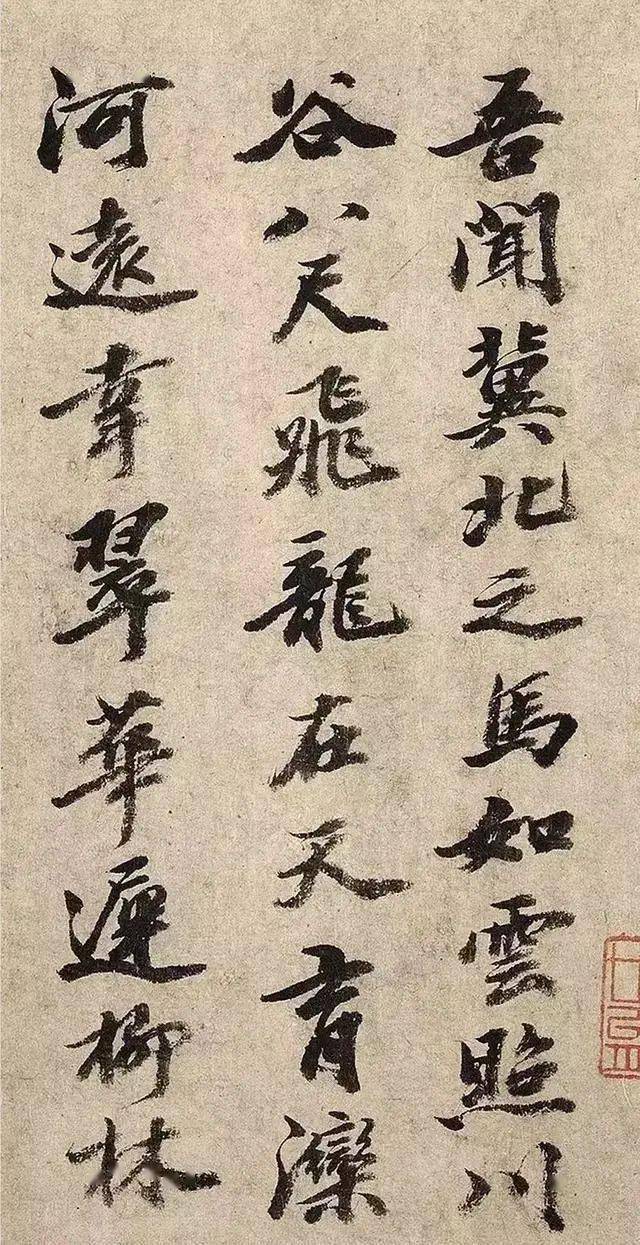 吾聞冀北之馬如雲照川
谷八尺飛龍在天育灤
河遠幸翠華柳林